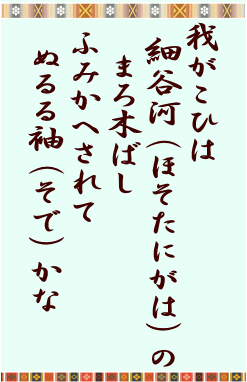 我がこひは
細谷河(ほそたにがは)の
まろ木ばし
ふみかへされて
ぬるる袖(そで)かな